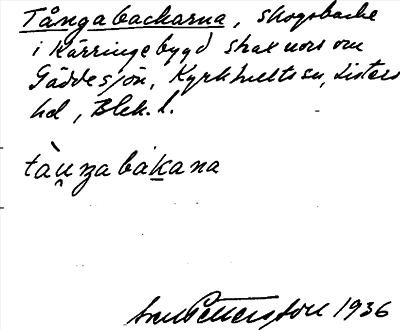 Tångabackarna, skogsbacke
i Kärringebygd strax norr om
Gäddesjön, Kyrkhults sn, Listers
hd, Blek. l.
tàu̯ŋabákana
Pettersson 1936